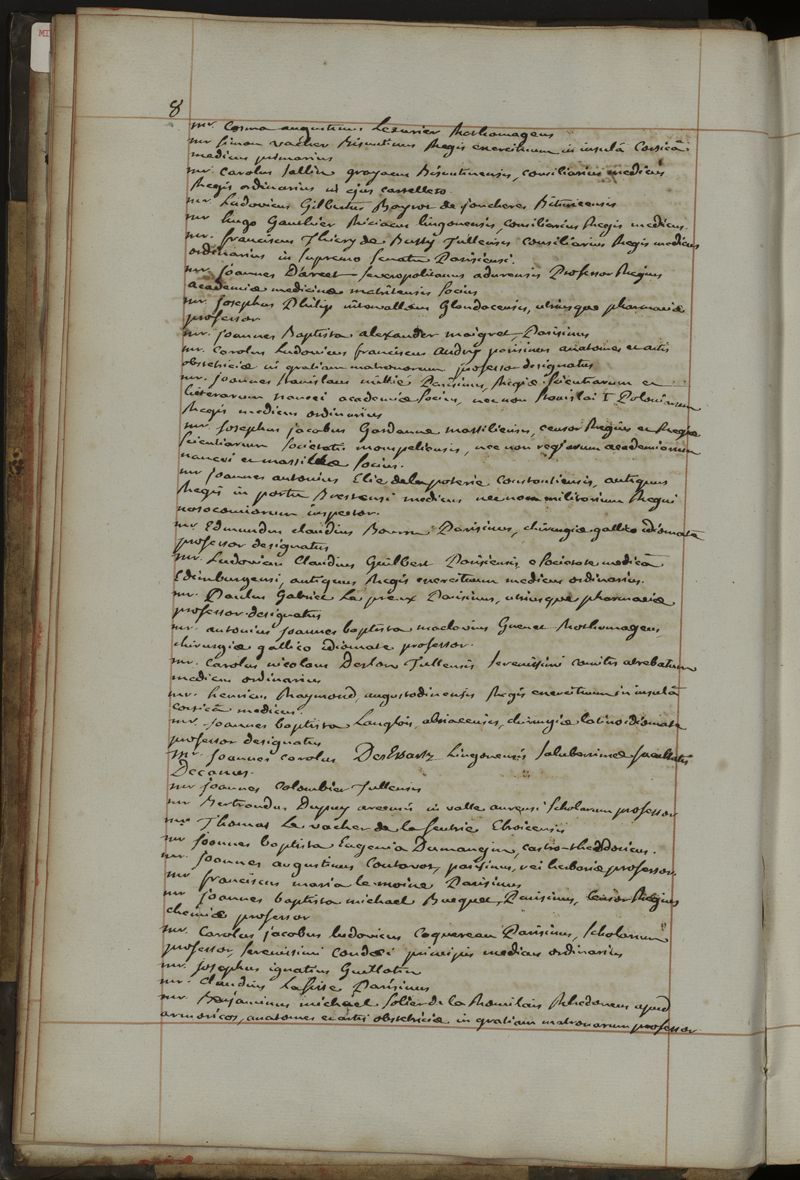 8
mr. Cosma augustinus Lezurier Rothomageus
mr simon vacher Bisuntinus Regis exercituum in insulâ Corsicâ
medicus primarius
mr. Carolus Sallin grayacus Bisuntinensis, consiliarius medicus
Regis ordinarius in ejus castelleto
mr Ludovicus Gilbertus Boyrot de joncheres Bituricensis
mr hugo Gauthier Riciacus lingonensis, consiliarius Regis medicus.
mr. franciscus Thiery de Bussy Tullensis consiliarius Regis medicus
ordinarius in supremo senatu Parisiensi.
mr joannes Darcet severopolitanus adurensis Professor Regius
academiæ medicinæ matritensis socius
mr. josephus Philip Glandacensis, utriusque pharmaciæ
professor
mr. joannes Baptista alexander maigret, Parisinus
mr. Carolus Ludovicus franciscus Andry parisinus anatomes et artis
obstetriciæ in gratiam matronarum professor designatus
mr. joannes stanislaus mittié Parisinus, Regiæ scientiarum et
litterarum nancei academiæ socius, nec non stanislai I Poloniarum
Regis medicus ordinarius
mr. josephus jacobus Gardanne massiliensis, censor Regius et Regiæ
scientiarum societatis monspeliensis, nec non regiarum academiarum
nancei et massiliæ socius.
mr joannes antonius Elie delapoterie Constantiensis, antiquus
Regis in portu Brestensi medicus nec non militarium Regni
nosocomiorum inspector.
mr Edmundus claudius Bourru Parisinus, chirurgiæ gallico idiomate
professor designatus
mr. Ludovicus Claudius Guilbert Parisiensis e societate medicâ
Edimburgensi, antiquus Regis exercituum medicus ordinarius.
mr. Paulus Gabriel Le preux Parisinus, utriusque pharmaciæ
professor designatus
mr. antonius joannes baptista maclovius Guenet Rothomageus
chirurgiæ gallico idiomate professor.
mr. Carolus nicolaus Deslon Tullensis serenissimi comitis atrebatum
medicus ordinarius
mr. henricus Raymond, augustodinensis Regis exercituum in insulâ
corsicâ medicus.
mr. joannes baptista Langlois, abriacensis, chirurgiæ latino idiomate
professor designatus
mr. joannes carolus DesEssartz Lingonensis saluberrimæ facultatis
Decanus.
mr joannes Colombier Tullensis
mr Bertrandus Dupuy arcensis in valle aurensi scholarum professor
mr Thomas Le vacher de la feutrie Ebroicensis
mr joannes baptista Eugenia Dumangin, castro-theodoricus.
mr. joannes augustinus Coutavoz, parisinus, rei herbariæ professor.
mr franciscus maria le moine Parisinus
mr joannes baptista michael Bucquet, Parisinus, Censor Regius
chemiæ professor
mr. Carolus jacobus ludovicus Coquereau Parisinus, scholarum
professor, serenissimi condæi principis medicus ordinarius
mr. josephus ignatius Guillotin
mr. claudius Lafisse Parisinus
mr. Benjaminus michael solier de la Romilais Rhedoneus apud
armoricos, anatomes et artis obstetriciæ in gratiam matronarum professor